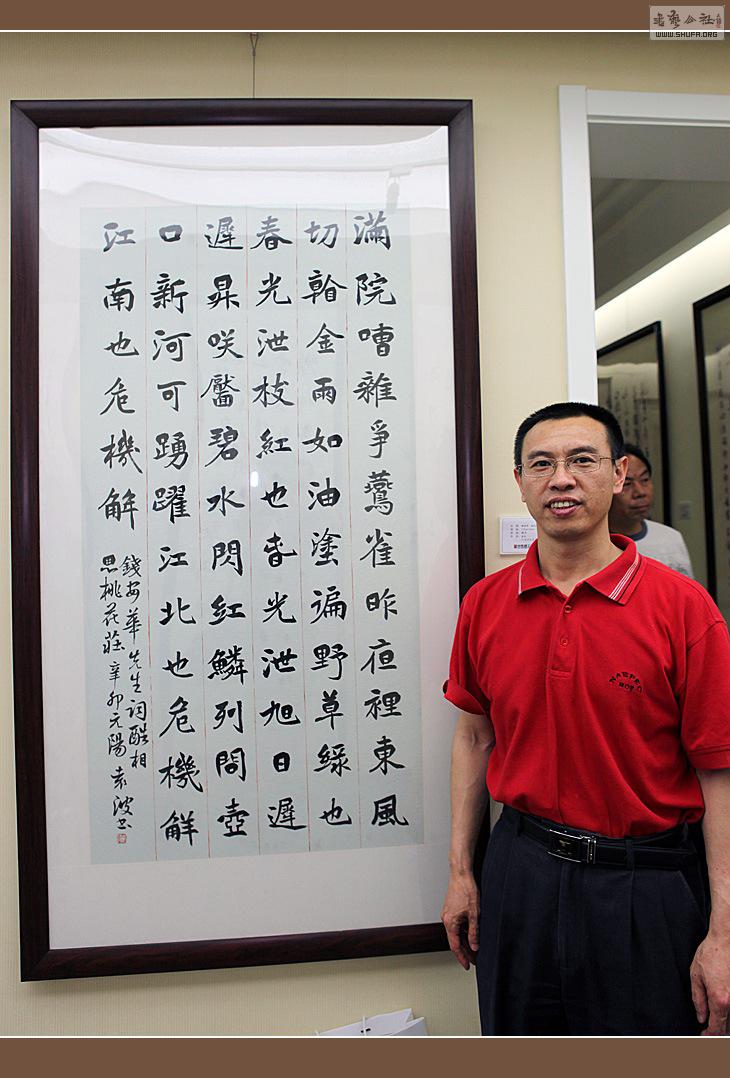 書艺公社
WWW.SHUFA.ORG
滿院嘈雜爭鷰雀昨夜裡東風
切翰金雨如油塗遍野草綠也
春光泄枝紅也昏光泄旭日遲
遲昇咲靨碧水閃紅鱗列閭壺
口新河可踴躍江北也危機解
江南也危機解
錢安華先生詞酷相
思桃花莊 辛卯元陽 袁波书